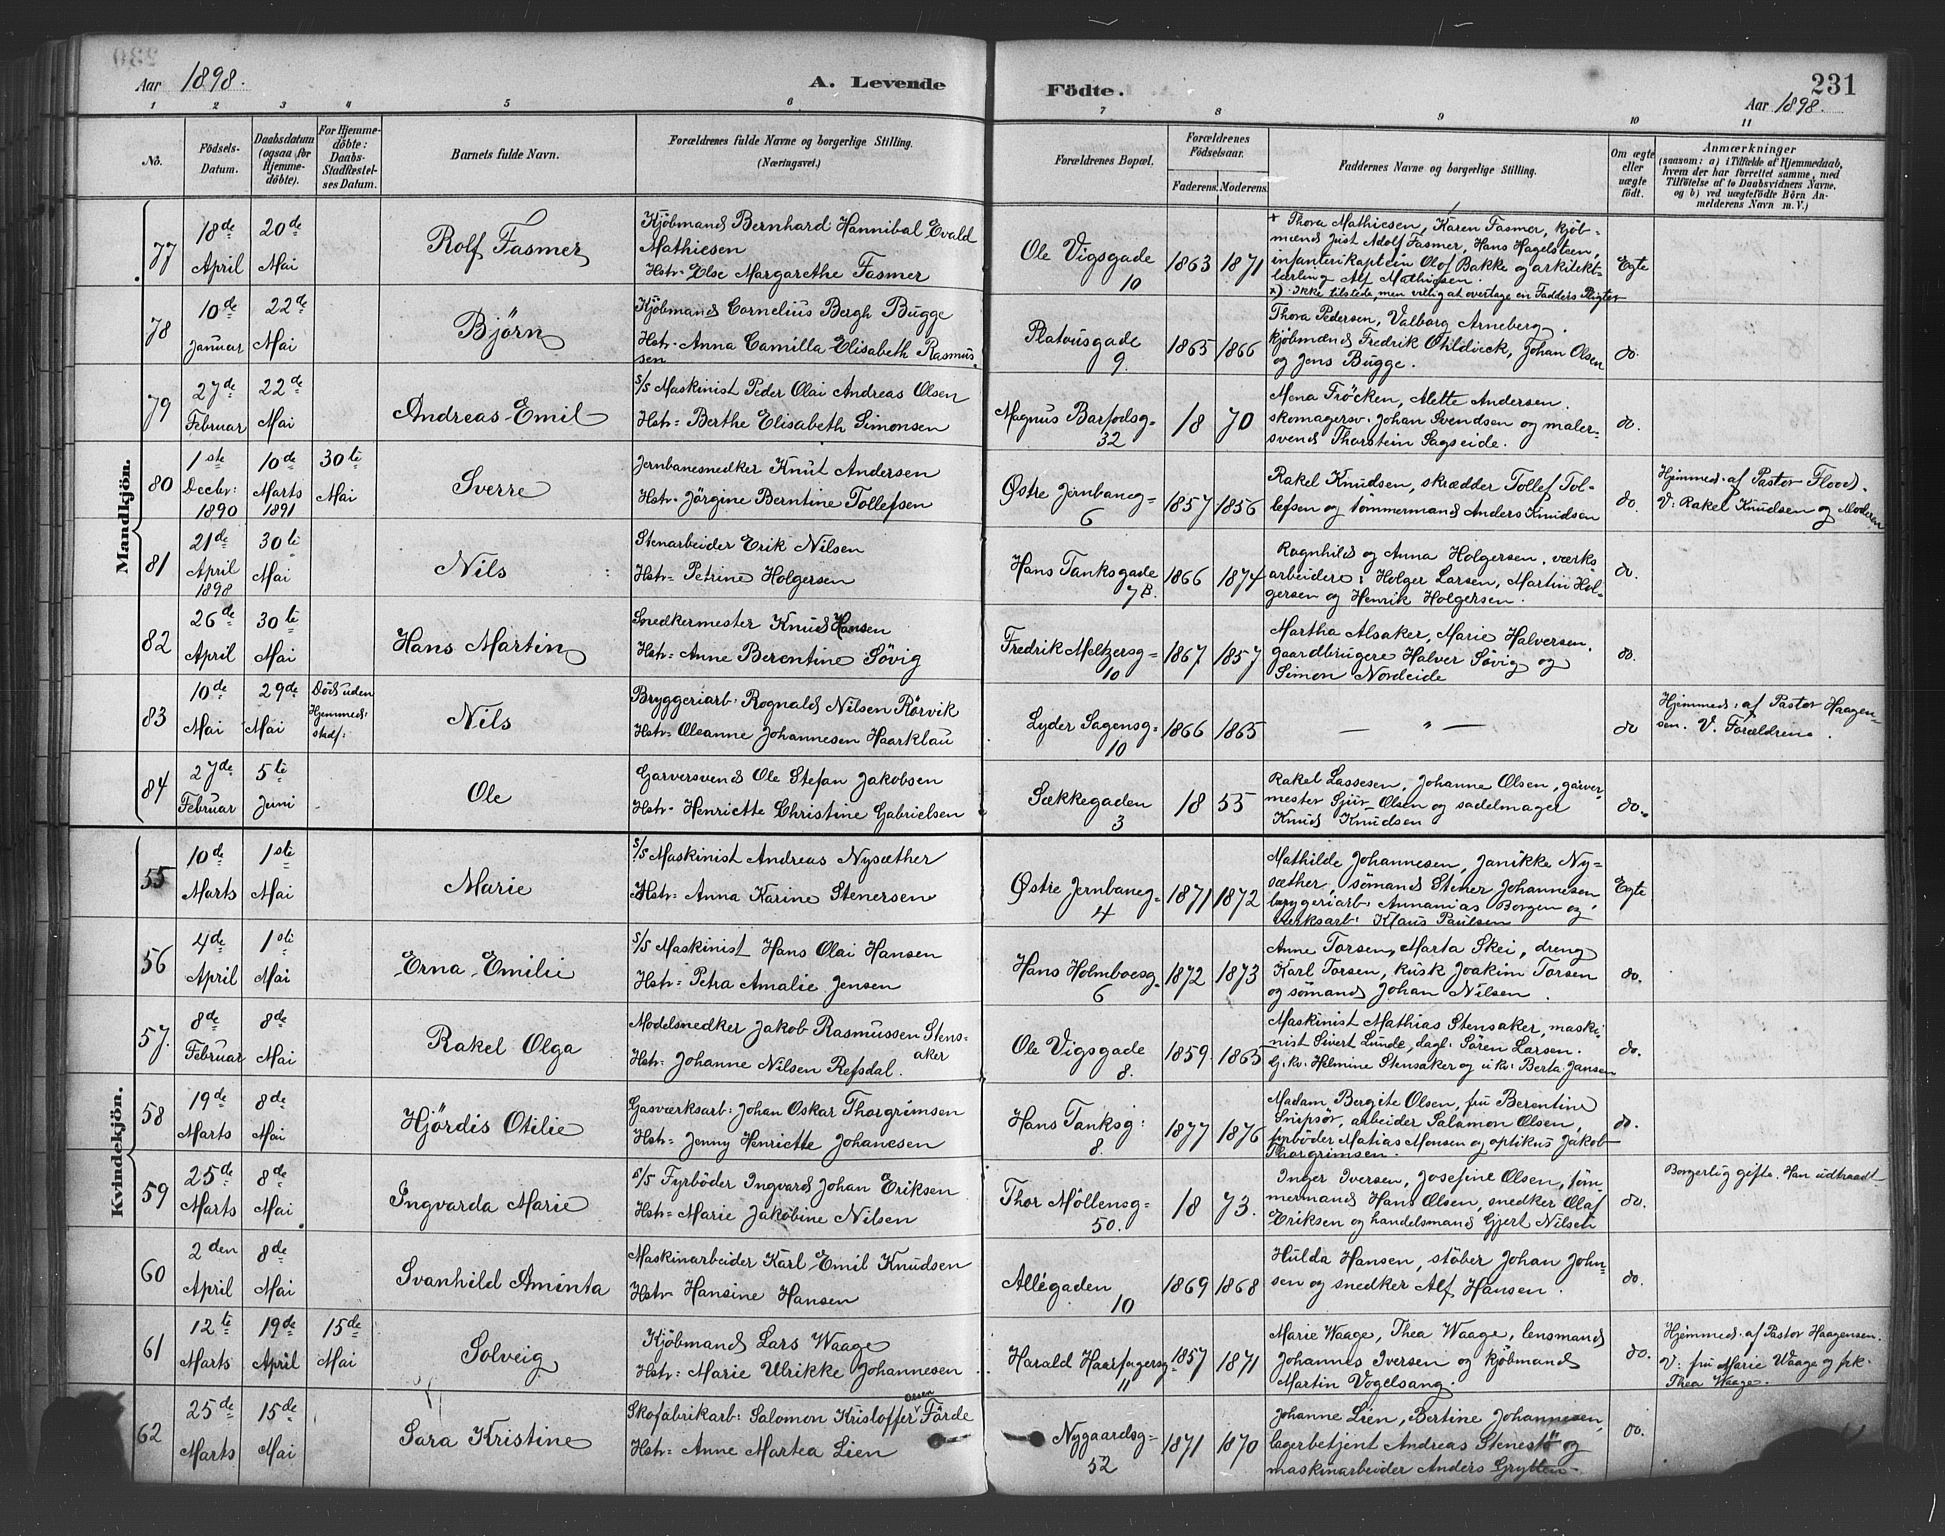 Aar 1898.
A. Levende Födte.
231
Aar 1898.
1 2 3 4 5 6 7 8 9 10 11
No.
Födsels-Datum.
Daabsdatum (ogsaa for Hjemmedöbte).
For Hjemmedöbte: Daabs-Stadfæstelses Datum.
Barnets fulde Navn.
Forældrenes fulde Navne og borgerlige Stilling.
(Næringsvei.)
Forældrenes Bopæl.
Forældrenes Födselsaar.
Faderens. Moderens.
Faddernes Navne og borgerlige Stilling.
Om ægte eller uægte födt.
Anmærkninger
(saasom: a) i Tilfælde af Hjemmedaab,
hvem der har forrettet samme, med
Tilföielse af to Daabsvidners Navne,
og b) ved uægtefödte Börn An-
melderens Navn m. V.)
Mandkjön.
77
18de April
20de Mai
Rolf Fasmer
Kjöbmand Bernhard Hannibal Evald
Mathiesen
Hstr. Else Margarethe Fasmer
Ole Vigsgade
10
1863 1871
x Thora Mathiesen, Karen Fasmer, kjöb-
mænd Just Adolf Fasmer, Hans Hagelsteen,
infanterikaptein Olof Bakke og arkitekt-
lærling Alf Mathiesen.
x) Ikke tilstede, men villig at overtage en Fadders Pligter
Egte
78
10de Januar
22de Mai
Björn
Kjöbmand Cornelius Bergh Bugge
Hstr. Anna Camilla Elisabeth Rasmus
sen
Platousgade
9.
1865 1866
Thora Pedersen, Valborg Arneberg,
kjöbmænd Fredrik Ohldieck, Johan Olsen
og Jens Bugge.
do.
79
27de Februar
22de Mai
Andreas Emil
S/S Maskinist Peder Olai Andreas Olsen
Hstr: Berthe Elisabeth Simonsen
Magnus Barfodsg-
32
18 70
Mona Fröcken, Mette Andersen.
skomagersv. Johan Svendsen og maler-
svend Thorstein Sagseide.
do.
80
1ste Decbr: 1890
10de Marts 1891
30te Mai
Sverre
Jernbanesnedker Knut Andersen
Hstr. Jörgine Berntine Tollefsen
Østre Jernbaneg-
6
1857 1856
Rakel Knudsen, skrædder Tollef Tol-
lefsen og tömmermand Anders Knudsen
do.
Hjemmed. af Pastor Flood.
V: Rakel Knudsen og Moderen
81
21de April 1898
30te Mai
Nils
Stenarbeider Erik Nilsen
Hstr: Petrine Holgersen
Hans Tanksgade
7B.
1866 1874
Ragnhild og Anna Holgersen, værks
arbeidere: Holger Larsen, Martin Hol-
gersen og Henrik Holgersen.
do.
82
26de April
30te Mai
Hans Martin
Snedkermester Knud Hansen
Hstr: Anne Berentine Sövig
Fredrik Meltzersg-
10
1867 1857
Martha Alsaker, Marie Halversen,
gaardbrugere Halver Sövig og
Simon Nordeide
do.
83
10de Mai
29de Mai
Död uden Hjemmed: stadf:
Nils
Bryggeriarb. Rognald Nilsen Rörvik
Hstr. Oleanne Johannesen Haarklau
Lyder Sagensg-
10
1866 1865
— " —
do
Hjemmed: af Pastor Haagen-
sen. V. Forældrene.
84
27de Februar
5te Juni
Ole
Garversvend Ole Stefan Jakobsen
Hstr. Henriette Christine Gabrielsen
Sækkegaden
3
18 55
Rakel Lassesen, Johanne Olsen, garver-
mester Sjur Olsen og sadelmager
Knud Knudsen
do.
Kvindekjön.
55
10de Marts
1ste Mai
Marie
S/S Maskinist Andreas Nysæther
Hstr: Anna Karine Stenersen
Østre Jernbaneg-
4
1871 1872
Mathilde Johannesen, Janikke Ny-
sæther, sömand Stener Johannesen
bryggeriarb. Annanias Borgen og
værksarb: Klaus Paulsen
Egte
56
4de April
1ste Mai
Erna Emilie
S/S Maskinist Hans Olai Hansen
Hstr: Petra Amalie Jensen
Hans Holmboesg-
6
1872 1873
Anne Torsen, Marta Skei, dreng
Karl Torsen, kusk Joakim Torsen
og sömand Johan Nilsen.
do.
57.
8de Februar
8de Mai
Rakel Olga
Modelsnedker Jakob Rasmussen Stens-
aker
Hstr. Johanne Nilsen Refsdal.
Ole Vigsgade
8.
1859. 1865
Maskinist Mathias Stensaker, maski-
nist Sivert Lunde, dagl: Sören Larsen.
Gj. kv: Helmine Stensaker og u kv: Berta Jansen
do.
58
19de Marts
8de Mai
Hjördis Otilie
Gasværksarb: Johan Oskar Thorgrimsen
Hstr: Jenny Henriette Johanesen
Hans Tanksg:
8.
1877 1876
Madam Bergite Olsen, fru Berentine
Snipsör, arbeider Salamon Olsen,
fyrböder Matias Monsen og optikus Jakob
Thorgrimsen.
do.
59
25de Marts
8de Mai
Ingvarda Marie
S/S Fyrböder Ingvard Johan Eriksen
Hstr: Marie Jakobine Nilsen
Thor Möllensg-
50.
18 73.
Inger Iversen, Josefine Olsen, töm-
mermand Hans Olsen, snedker Olaf
Eriksen og handelsmand Gjert Nilsen
do.
Borgerlig gifte. Han udtraadt
60
2den April
8de Mai
Svanhild Aminta
Maskinarbeider Karl Emil Knudsen
Hstr Hansine Hansen
Allégaden
10
1869 1868
Hulda Hansen, stöber Johan John-
sen og snedker Alf Hansen.
do.
61
12te Marts
19de April
15de Mai
Solveig
Kjöbmand Lars Waage
Hstr: Marie Ulrikke Johannesen
Harald Haarfagersg-
11
1857 1871
Marie Waage, Thea Waage, lensmand
Johannes Iversen og kjöbmand
Martin Vogelsang.
do.
Hjemmed. af Pastor Haagensen.
V: fru Marie Waage og frk.
Thea Waage.
62
25de Marts
15de Mai
Sara Kristine
Skofabrikarb: Salomon Kristoffer Olsen Förde
Hstr: Anne Martea Lien
Nygaardsg-
52
1871 1870
Johanne Lien, Bertine Johannesen,
lagerbetjent Andreas Stenestö og
maskinarbeider Anders Grytten
do.